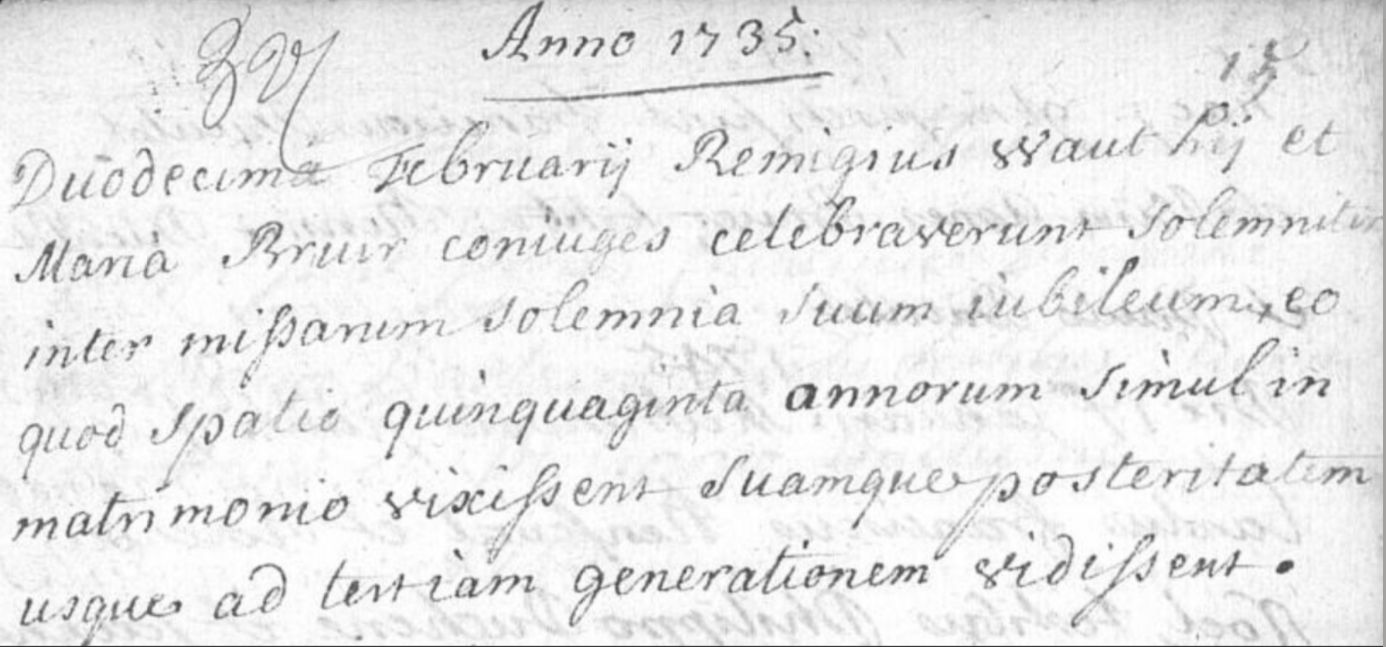 Anno 1735:
Duodecima Februarij Remigius Wauthij et
Maria Bruir coniuges celebraverunt solemniter
inter missarum solemnia suum iubileum, eo
quod spatio quinquaginta annorum simul in
matrimonio vixissent suamque posteritatem
usque ad tertiam generationem vidissent.